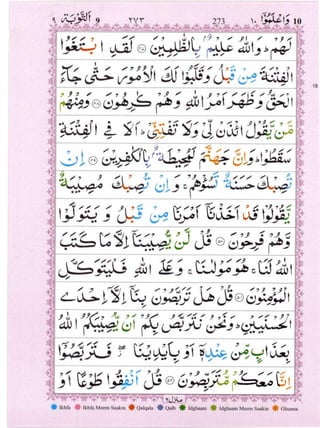 ٩ اَلتَّوْبَة 9 ٢٧٣ 273 ١٠ وَاعْلَمُوْۤا 10
لَهُمْ ؕ وَاللّٰهُ عَلِيْمٌۢ بِالظّٰلِمِيْنَ ۞ لَقَدِ ابْتَغَوُا
الْفِتْنَةَ مِنْ قَبْلُ وَقَلَّبُوْا لَكَ الْاُمُوْرَ حَتّٰى جَآءَ
الْحَقُّ وَظَهَرَ اَمْرُ اللّٰهِ وَهُمْ كٰرِهُوْنَ ۞ وَمِنْهُمْ
مَّنْ يَّقُوْلُ ائْذَنْ لِّيْ وَلَا تَفْتِنِّيْ ؕ اَلَا فِي الْفِتْنَةِ
سَقَطُوْا ؕ وَاِنَّ جَهَنَّمَ لَمُحِيْطَةٌۢ بِالْكٰفِرِيْنَ ۞ اِنْ
تُصِبْكَ حَسَنَةٌ تَسُؤْهُمْ ۚ وَاِنْ تُصِبْكَ مُصِيْبَةٌ
يَّقُوْلُوْا قَدْ اَخَذْنَاۤ اَمْرَنَا مِنْ قَبْلُ وَيَتَوَلَّوْا
وَّهُمْ فَرِحُوْنَ ۞ قُلْ لَّنْ يُّصِيْبَنَاۤ اِلَّا مَا كَتَبَ
اللّٰهُ لَنَا ۚ هُوَ مَوْلٰىنَا ۚ وَعَلَى اللّٰهِ فَلْيَتَوَكَّلِ
الْمُؤْمِنُوْنَ ۞ قُلْ هَلْ تَرَبَّصُوْنَ بِنَاۤ اِلَّاۤ اِحْدَى
الْحُسْنَيَيْنِ ؕ وَنَحْنُ نَتَرَبَّصُ بِكُمْ اَنْ يُّصِيْبَكُمُ اللّٰهُ
بِعَذَابٍ مِّنْ عِنْدِهٖۤ اَوْ بِاَيْدِيْنَا ۖ فَتَرَبَّصُوْۤا
اِنَّا مَعَكُمْ مُّتَرَبِّصُوْنَ ۞ قُلْ اَنْفِقُوْا طَوْعًا اَوْ
منزل ٢
Ikhfa Ikhfa Meem Saakin Qalqala Qalb Idghaam Idghaam Meem Saakin Ghunna
18